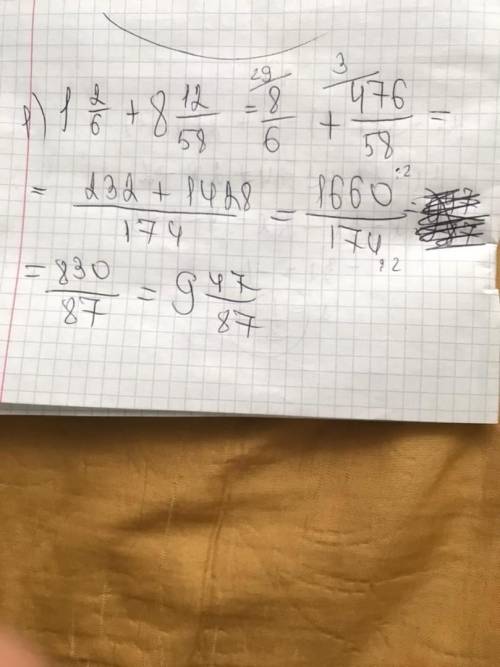 в) 1 2/6 + 8 12/58 = 29/ 8/6 + 3/ 476/58 =
= 232 + 1428 / 174 = 1660 :2 / 174 :2
= 830/87 = 9 47/87